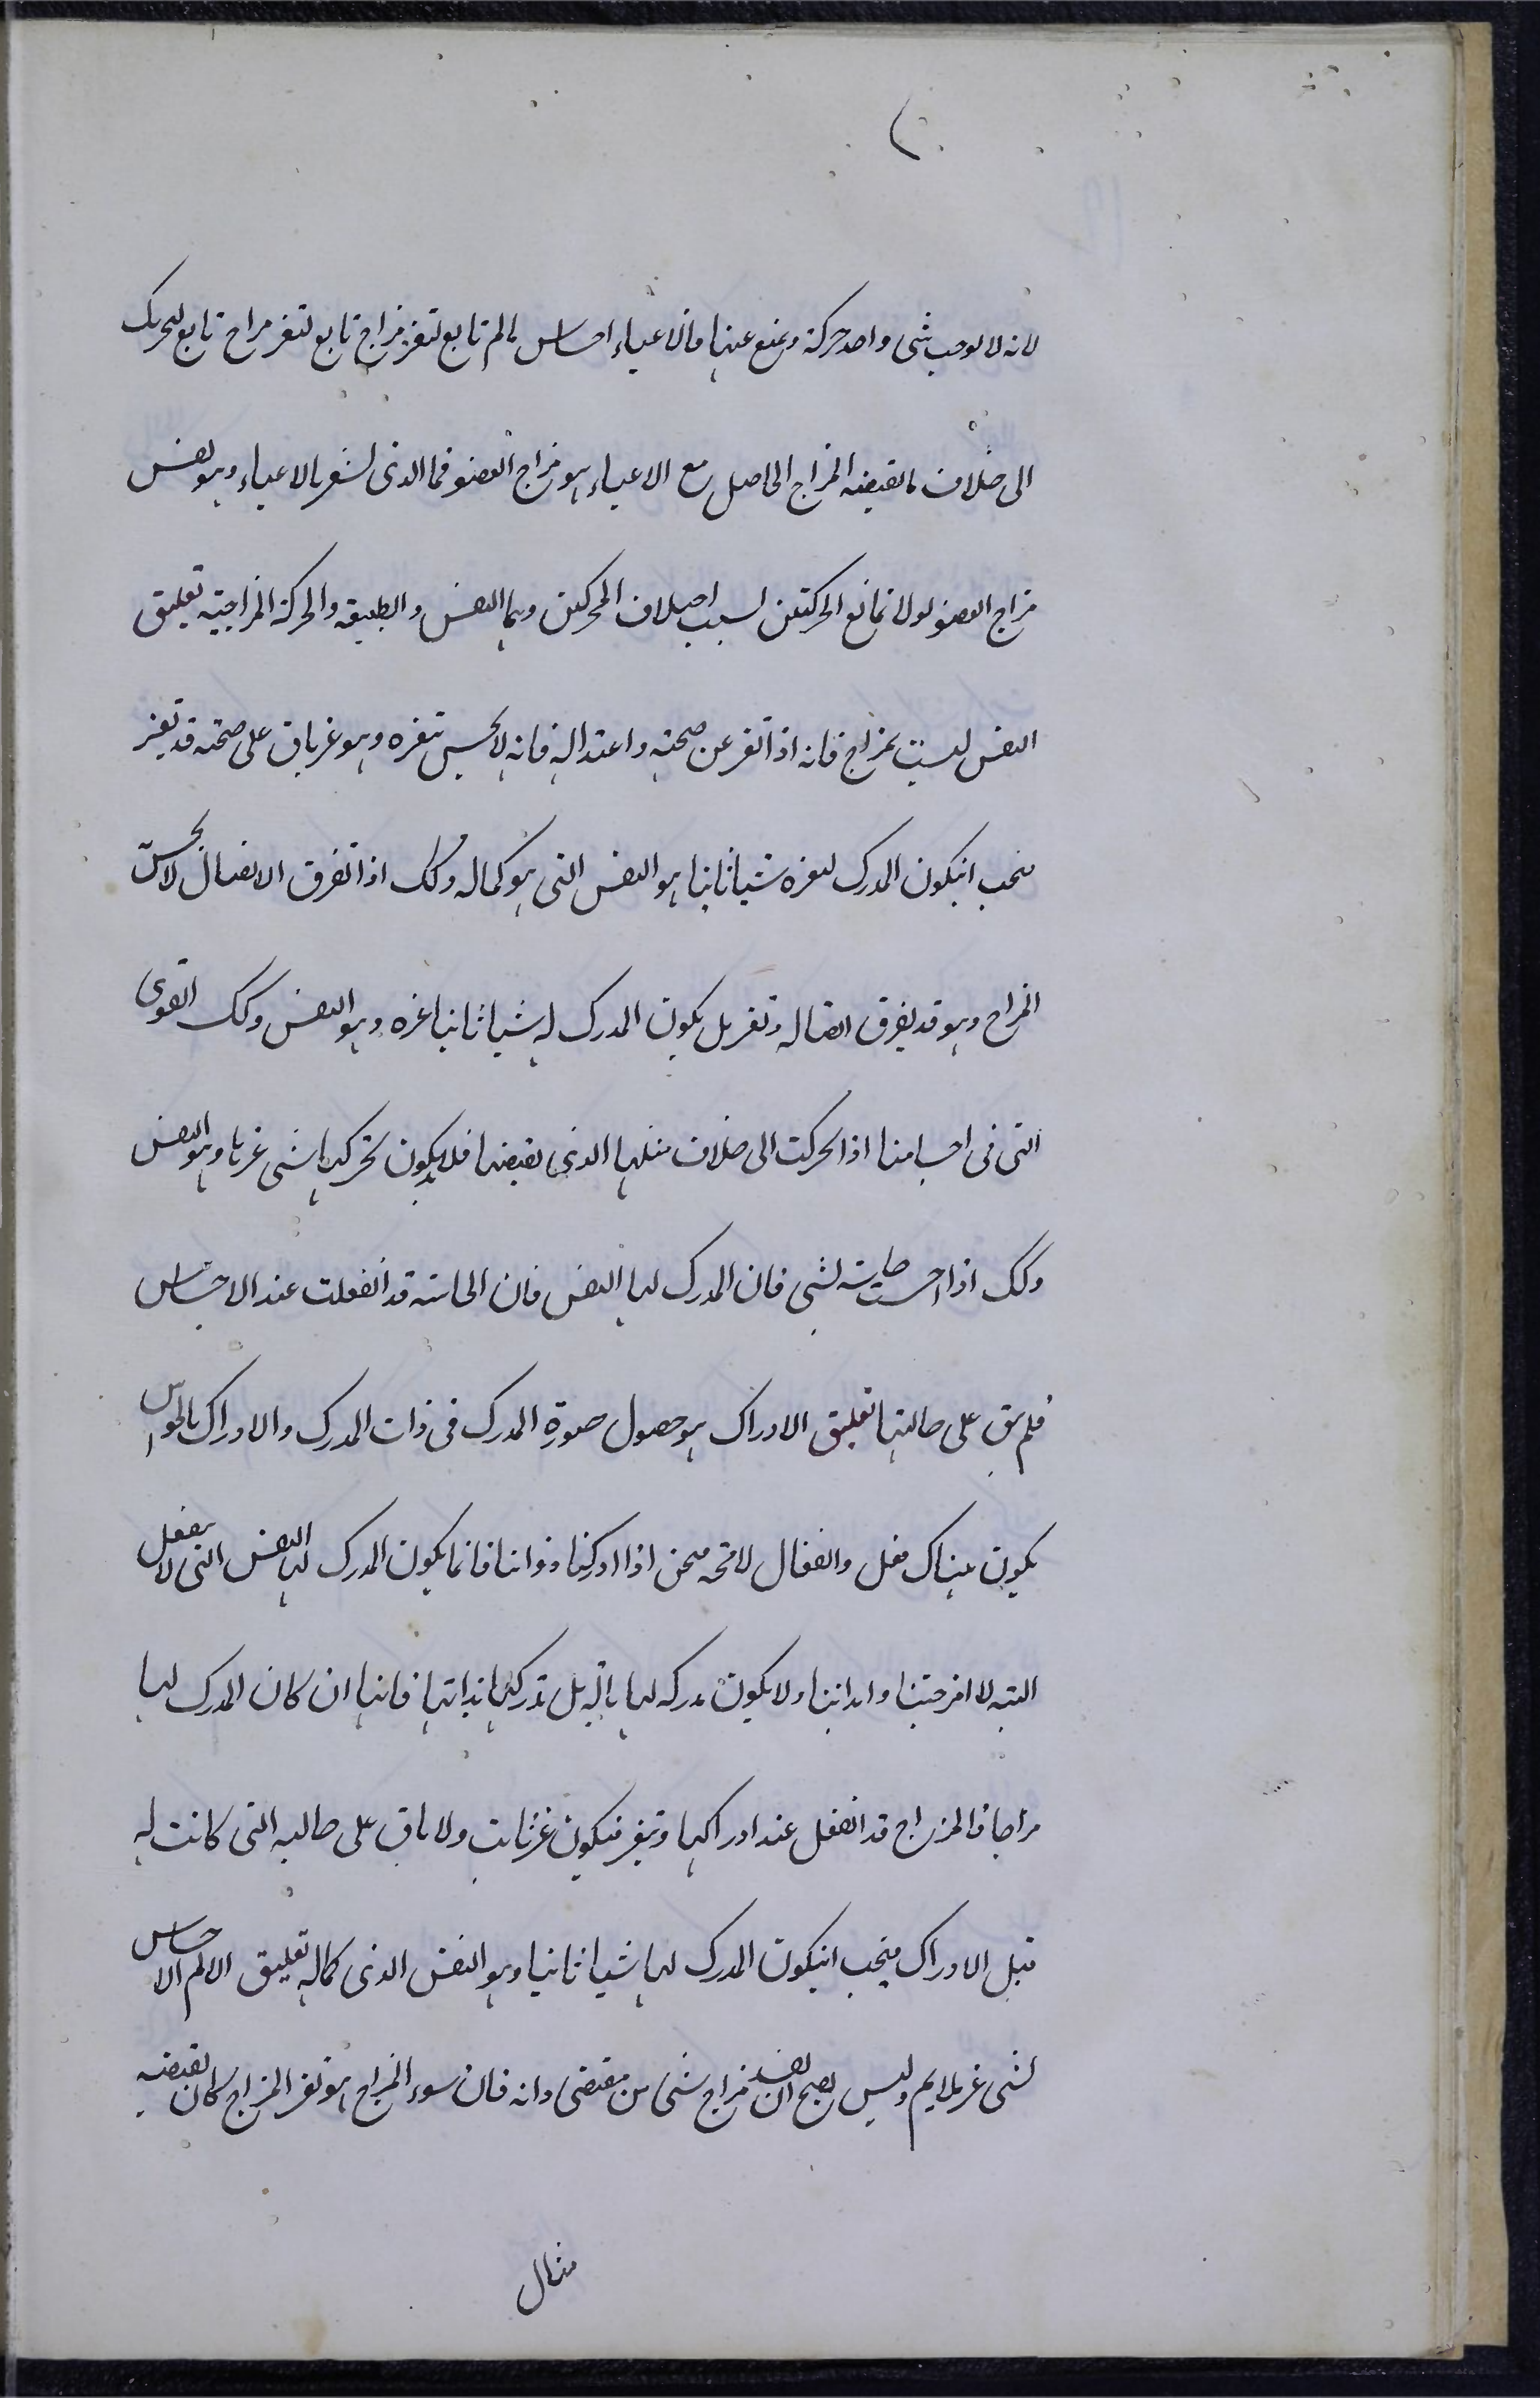 لانه لا يوجب شى واحد حركة ويمنع عنها فالاعياء احساس بالم تابع لتغير مزاج تابع لتغير مزاج تابع لتحريك
الى خلاف ما يقتضيه المزاج الحاصل مع الاعياء هو مزاج العضو فما الذى يشعر بالاعياء وهو نفس
مزاج العضو لولا تمانع الحركتين لسبب اختلاف المحركين وهما النفس والطبيعة والحركة المزاجية تعليق
النفس ليست بمزاج فانه اذا تغير عن صحته واعتداله فانه لا يحس بتغيره وهو غير باق على صحته قد تغير
فيجب انيكون المدرك لتغيره شيئا ثانيا هو النفس التى هو كماله وكك اذا تفرق الاتصال لا يحس
المزاج وهو قد يفرق اتصاله وتغير بل يكون المدرك له شيئا ثانيا غيره وهو النفس وكك القوى
التى فى اجسامنا اذا تحركت الى خلاف ميلها الذى يقتضيها فلا يكون تحركها شى غيرها وهو النفس
وكك اذا احست حاسة لشى فان المدرك لها النفس فان الحاسة قد انفعلت عند الاحساس
فلم يبق على حالتها تعليق الادراك هو حصول صورة المدرك فى ذات المدرك والادراك بالحواس
يكون هناك فعل وانفعال لا محه فنحن اذا ادركنا ذواتنا فانما يكون المدرك لها النفس التى لا ينفعل
البتة لا امزجتنا وابداننا ولا يكون مدركه لها بآلة بل تدركها بذاتها فانها ان كان المدرك لها
مزاجا فالمزاج قد انفعل عند ادراكها وتغير فيكون غير ثابت ولا باق على حالته التى كانت له
قبل الادراك فيجب انيكون المدرك لها شيئا ثانيا وهو النفس الذى كماله تعليق الالم الاحساس
لشى غير ملايم وليس يصح ان يفسد مزاج شى من مقتضى ذاته فان سوء المزاج هو تغير المزاج كان يقتضيه
مثال